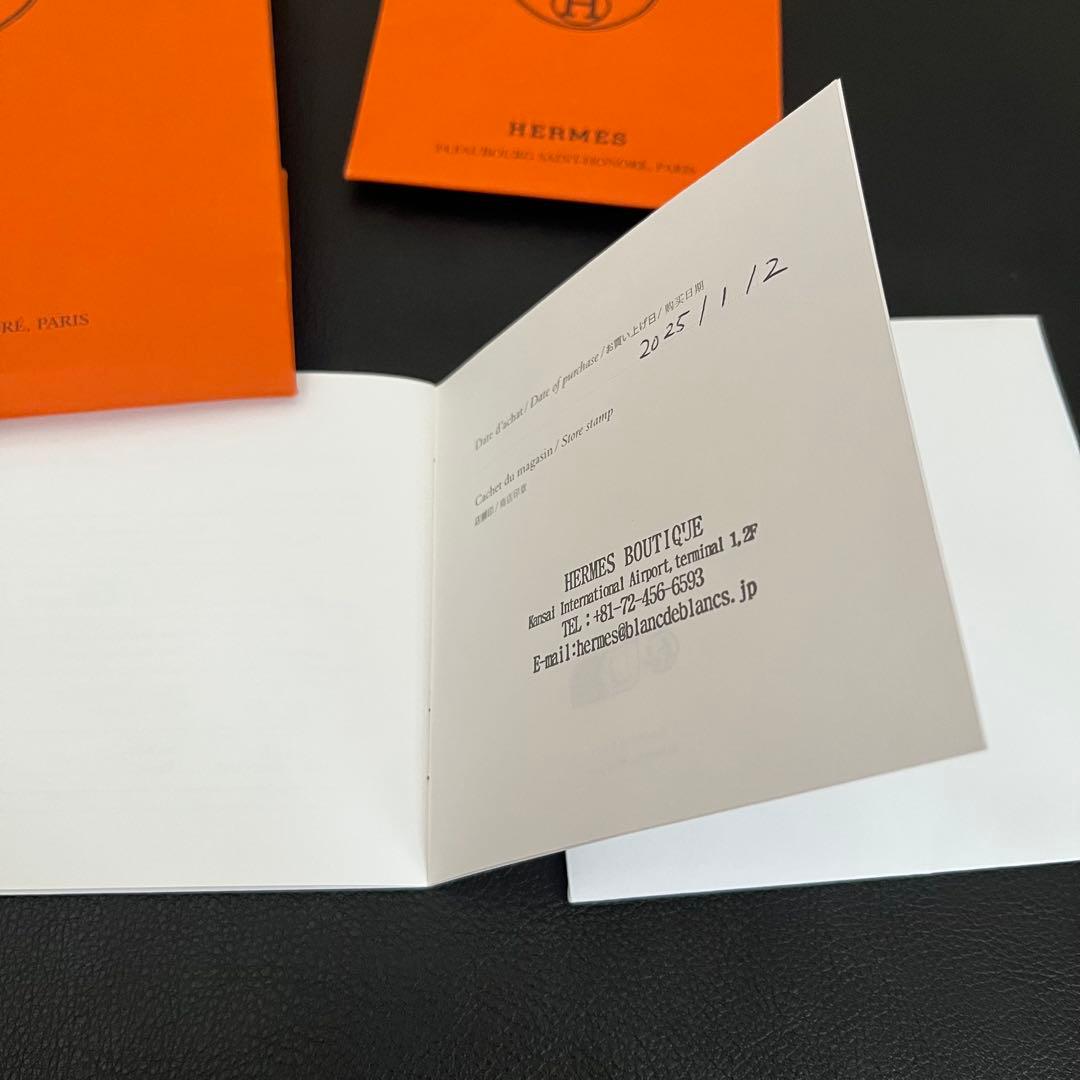 HERMES
FAUBOURG SAINT-HONORÉ, PARIS
RÉ, PARIS
Date d'achat / Date of purchase / お買い上げ日 / 购买日期
2025/1/2
Cachet du magasin / Store stamp
店舗印 / 商店印章
HERMES BOUTIQUE
Kansai International Airport, terminal 1, 2F
TEL : +81-72-456-6593
E-mail:hermes@blancdeblancs.jp